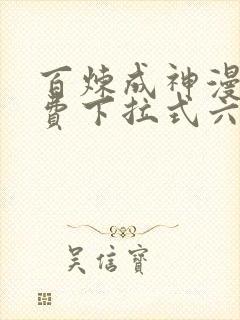 百炼成神漫
费下拉式六
吴信宝